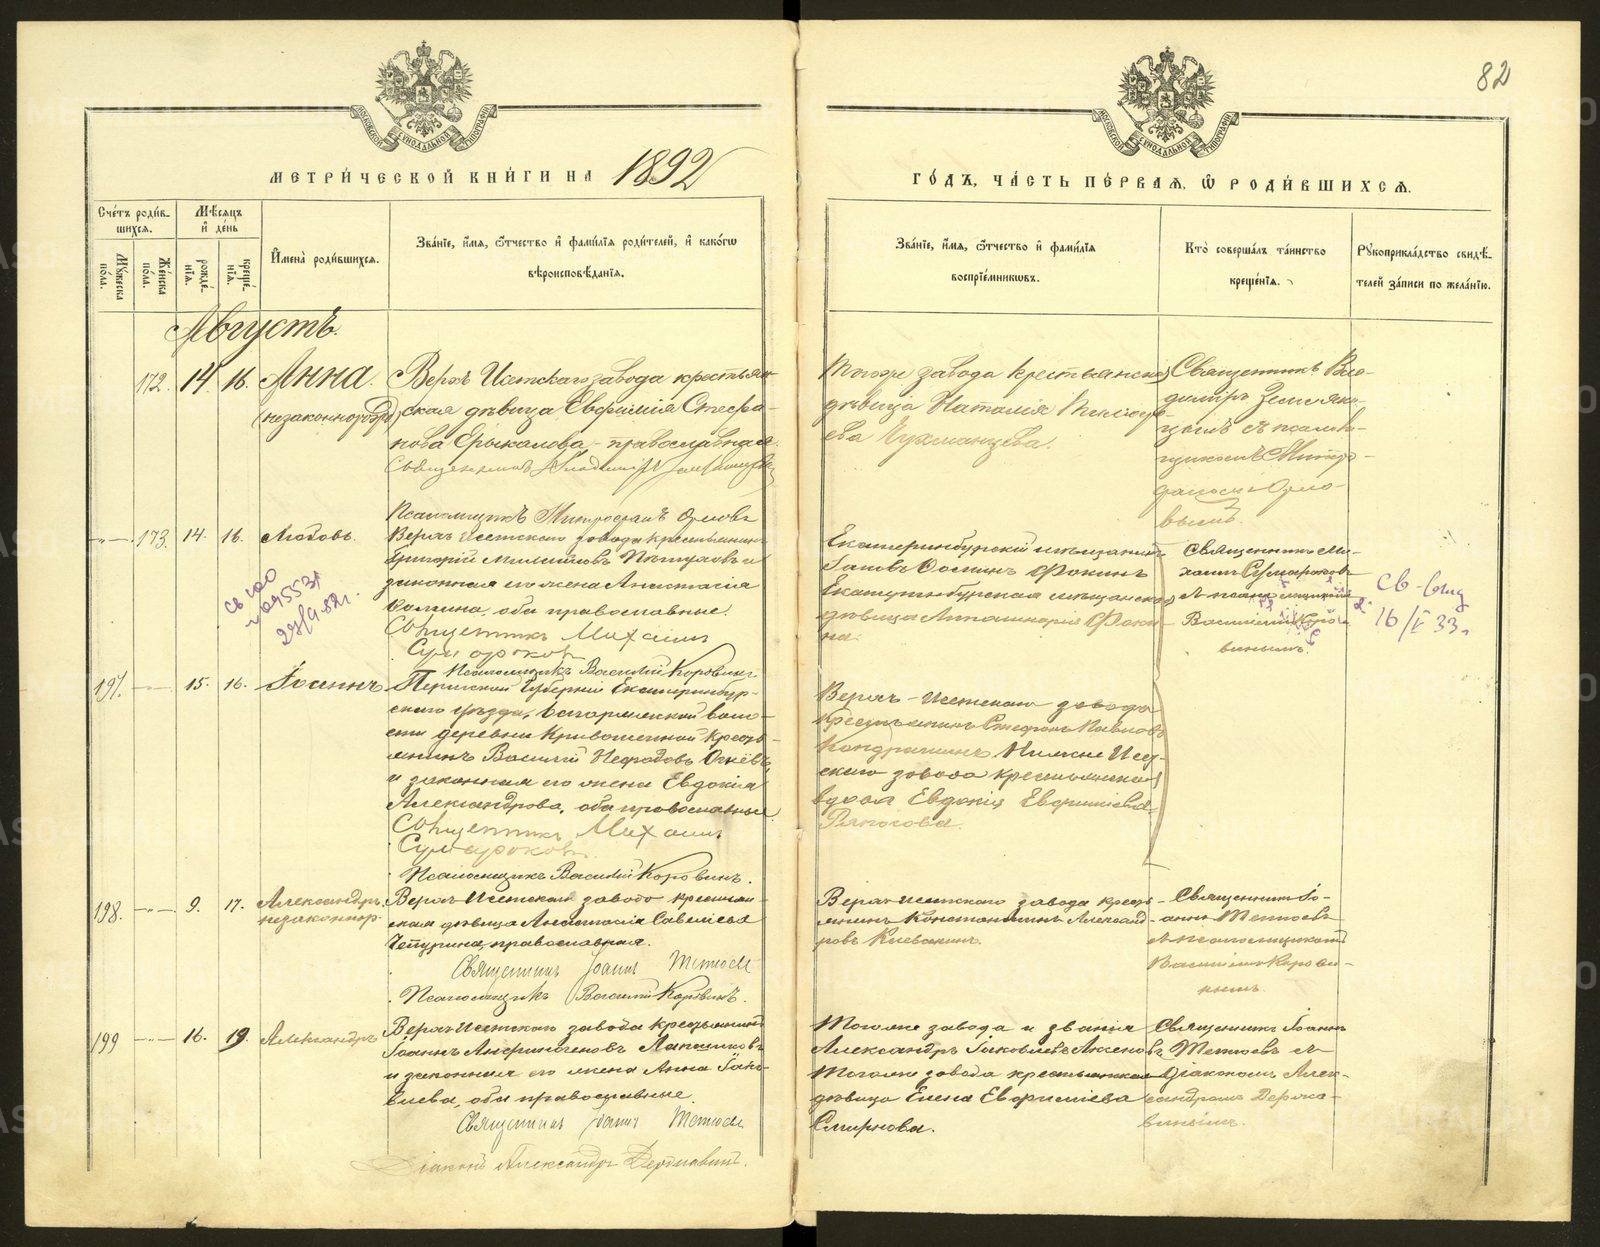 82
МЕТРИ́ЧЕСКОЙ КНИ́ГИ НА 1892
ГО́ДЪ, ЧА́СТЬ ПЕ́РВАЯ, Ѿ РОДИ́ВШИХСЯ.
Сче́тъ роди́в-
шихся.
Мѣ́сяцъ
и҆ де́нь
Му́жеска
по́ла.
Же́нска
по́ла.
рожде́-
нїѧ.
креще́-
нїѧ.
И҆мена̀ роди́вшихся.
Зва́нїе, и҆́мя, ѻ҆́тчество и҆ фами́лїя роди́телей, и҆ како́гѡ
вѣроисповѣ́данїя.
Зва́нїе, и҆́мя, ѻ҆́тчество и҆ фами́лїя
воспрїе́мникѡвъ.
Кто̀ соверша́лъ та́инство
креще́нїя.
Рꙋкоприкла́дство свидѣ́-
телей за́писи по жела́нїю.
Августъ.
172. 14. 16. Анна.
(незаконнорожд.)
Верхъ Исетскаго завода крестьян-
ская дѣвица Евфимія Стефа-
нова Ерыкалова, православная.
Священникъ Владиміръ Земляницынъ
Псаломщикъ Митрофанъ Орловъ
Тогоже завода крестьянская
дѣвица Наталія
ева Чухманцева.
Священникъ Вла-
диміръ Земляни-
цынъ съ псалом-
щикомъ Митро-
фаномъ Орло-
вымъ.
173. 14. 16. Любовь.
Верхъ Исетскаго завода крестьянинъ
Григорій Михайловъ Пѣтуховъ и
законная его жена Анастасія
Фомина, оба православные.
Священникъ Михаилъ
Сумароковъ
Псаломщикъ Василій Коровинъ
Екатеринбургскій мѣщанинъ
Іаковъ Фокинъ
Екатеринбургская мѣщанская
дѣвица Аполлинарія Фоки-
на.
Священникъ Ми-
хаилъ Сумароковъ
съ псаломщикомъ
Василіемъ Коро-
винымъ.
св-во
29/IX 52г.
св-во выд
16/V 33г
197. 15. 16. Іоаннъ
Пермской Губерніи Екатеринбур-
скаго уѣзда, волос-
ти деревни Кривошеиной кресть-
янинъ Василій Огнёвъ,
и законная его жена Евдокія
Александрова, оба православные
Священникъ Михаилъ
Сумароковъ.
Псаломщикъ Василій Коровинъ.
Верхъ-Исетскаго завода
крестьянинъ Стефанъ Павловъ
Кондрашинъ, Нижне Исет-
скаго завода крестьянская
вдова Евдокія Евфиміева
198. 9. 17. Александръ
незаконнор.
Верхъ-Исетскаго завода крестьян-
ская дѣвица Анастасія Савельева
Чепурина, православная.
Священникъ Іоаннъ
Псаломщикъ Василій Коровинъ.
Верхъ-Исетскаго завода кресть-
янинъ Константинъ Александ-
ровъ
Священникъ Іо-
аннъ
съ псаломщикомъ
Василіемъ Корови-
нымъ.
199 16. 19. Александръ
Верхъ-Исетскаго завода крестьянинъ
Іоаннъ Анфиногеновъ
и законная его жена Анна Іако-
влева, оба православные.
Священникъ Іоаннъ
Діаконъ Александръ Державинъ.
Тогоже завода и званія
Александръ Іаковлевъ Аксеновъ
Тогоже завода крестьянская
дѣвица Елена Евфиміева
Смирнова.
Священникъ Іоаннъ
съ
Діакономъ Алек-
сандромъ Держа-
винымъ.